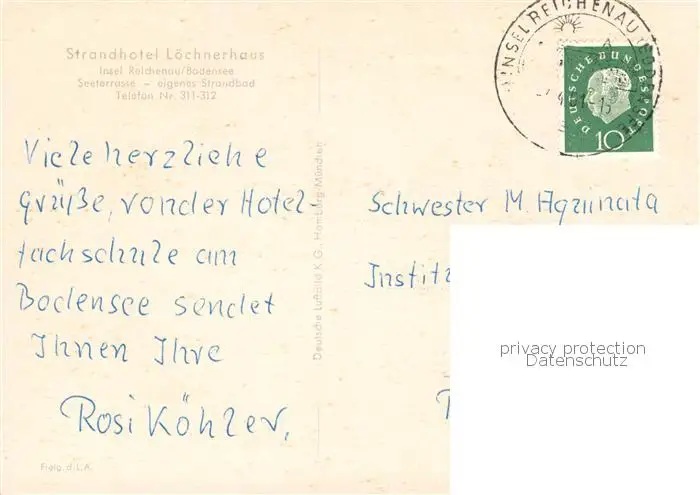 Strandhotel Löchnerhaus
Insel Reichenau/Bodensee
Seeterrasse – eigenes Strandbad
Telefon Nr. 311-312
Viele herzliche
Grüße, von der Hotel-
fachschule am
Bodensee sendet
Ihnen Ihre
Rosi Köhler,
Freig. d. L.A.
Deutsche Luftbild K.G., Hamburg-München
INSEL REICHENAU (BODENSEE)
DEUTSCHE BUNDESPOST
10
Schwester M.
Institut
privacy protection
Datenschutz